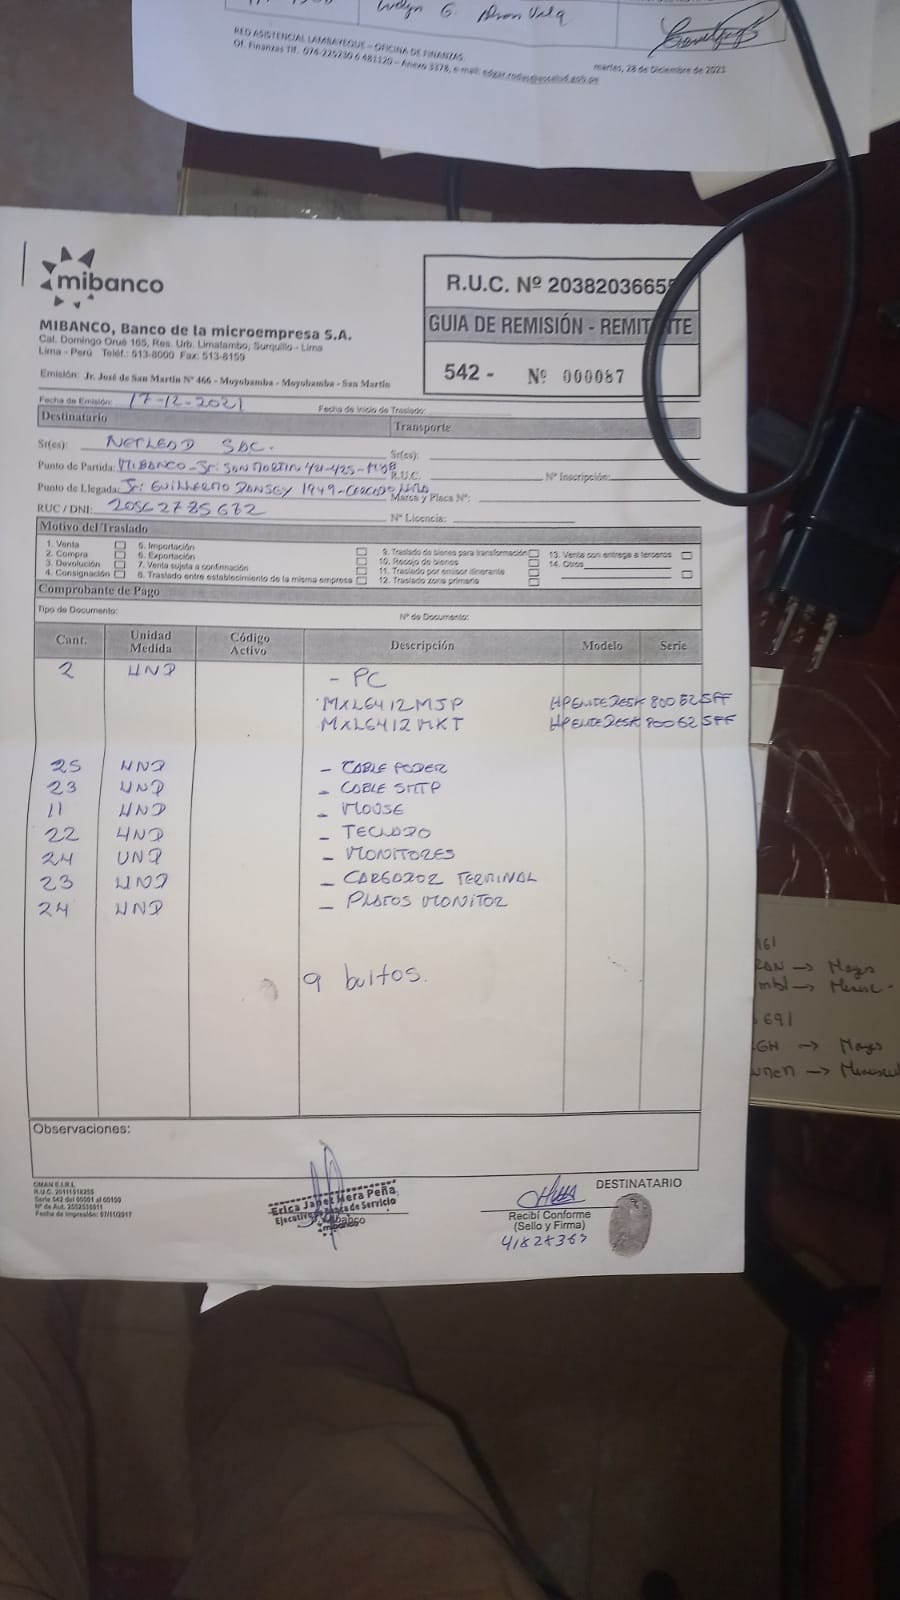 Evelyn G.
RED ASISTENCIAL LAMBAYEQUE – OFICINA DE FINANZAS
Of. Finanzas Tlf. 074-225230 ó 481120 – Anexo 3378, e-mail: edgar.rodas@essalud.gob.pe
martes, 28 de Diciembre de 2021
mibanco
MIBANCO, Banco de la microempresa S.A.
Cal. Domingo Orué 165, Res. Urb. Limatambo, Surquillo - Lima
Lima - Perú Teléf.: 513-8000 Fax: 513-8159
Emisión: Jr. José de San Martín Nº 466 - Moyobamba - Moyobamba - San Martín
R.U.C. Nº 2038203665
GUIA DE REMISIÓN - REMITENTE
542 - Nº 000087
Fecha de Emisión: 17-12-2021 Fecha de Inicio de Traslado:
Destinatario Transporte
Sr(es): NETLEAD SAC. Sr(es):
Punto de Partida: MIBANCO - Jr. SAN MARTIN 421-425 - MYB R.U.C. Nº Inscripción:
Punto de Llegada: Jr. GUILLERMO DANSEY 1949 - CERCADO LIMA Marca y Placa Nº:
RUC / DNI: 20562785672 Nº Licencia:
Motivo del Traslado
1. Venta 5. Importación 9. Traslado de bienes para transformación 13. Venta con entrega a terceros
2. Compra 6. Exportación 10. Recojo de bienes 14. Otros
3. Devolución 7. Venta sujeta a confirmación 11. Traslado por emisor itinerante
4. Consignación 8. Traslado entre establecimiento de la misma empresa 12. Traslado zona primaria
Comprobante de Pago
Tipo de Documento: Nº de Documento:
Cant. Unidad Medida Código Activo Descripción Modelo Serie
2 UND - PC
MXL6412MJP HP ELITEDESK 800 G2 SFF
MXL6412MKT HP ELITEDESK 800 G2 SFF
25 UND - CABLE PODER
23 UND - CABLE
11 UND - MOUSE
22 UND - TECLADO
24 UND - MONITORES
23 UND - CARGADOR TERMINAL
24 UND - PLATOS MONITOR
9 bultos.
Observaciones:
OMAN E.I.R.L.
R.U.C. 20111518255
Serie 542 del 00001 al 00100
Nº de Aut. 2552536011
Fecha de Impresión: 07/11/2017
Erica Janet Mera Peña
Ejecutivo de Banca de Servicio
mibanco
DESTINATARIO
Recibí Conforme
(Sello y Firma)
41828363
161
RAN → Mayo
mbl →
691
GH → Mayo